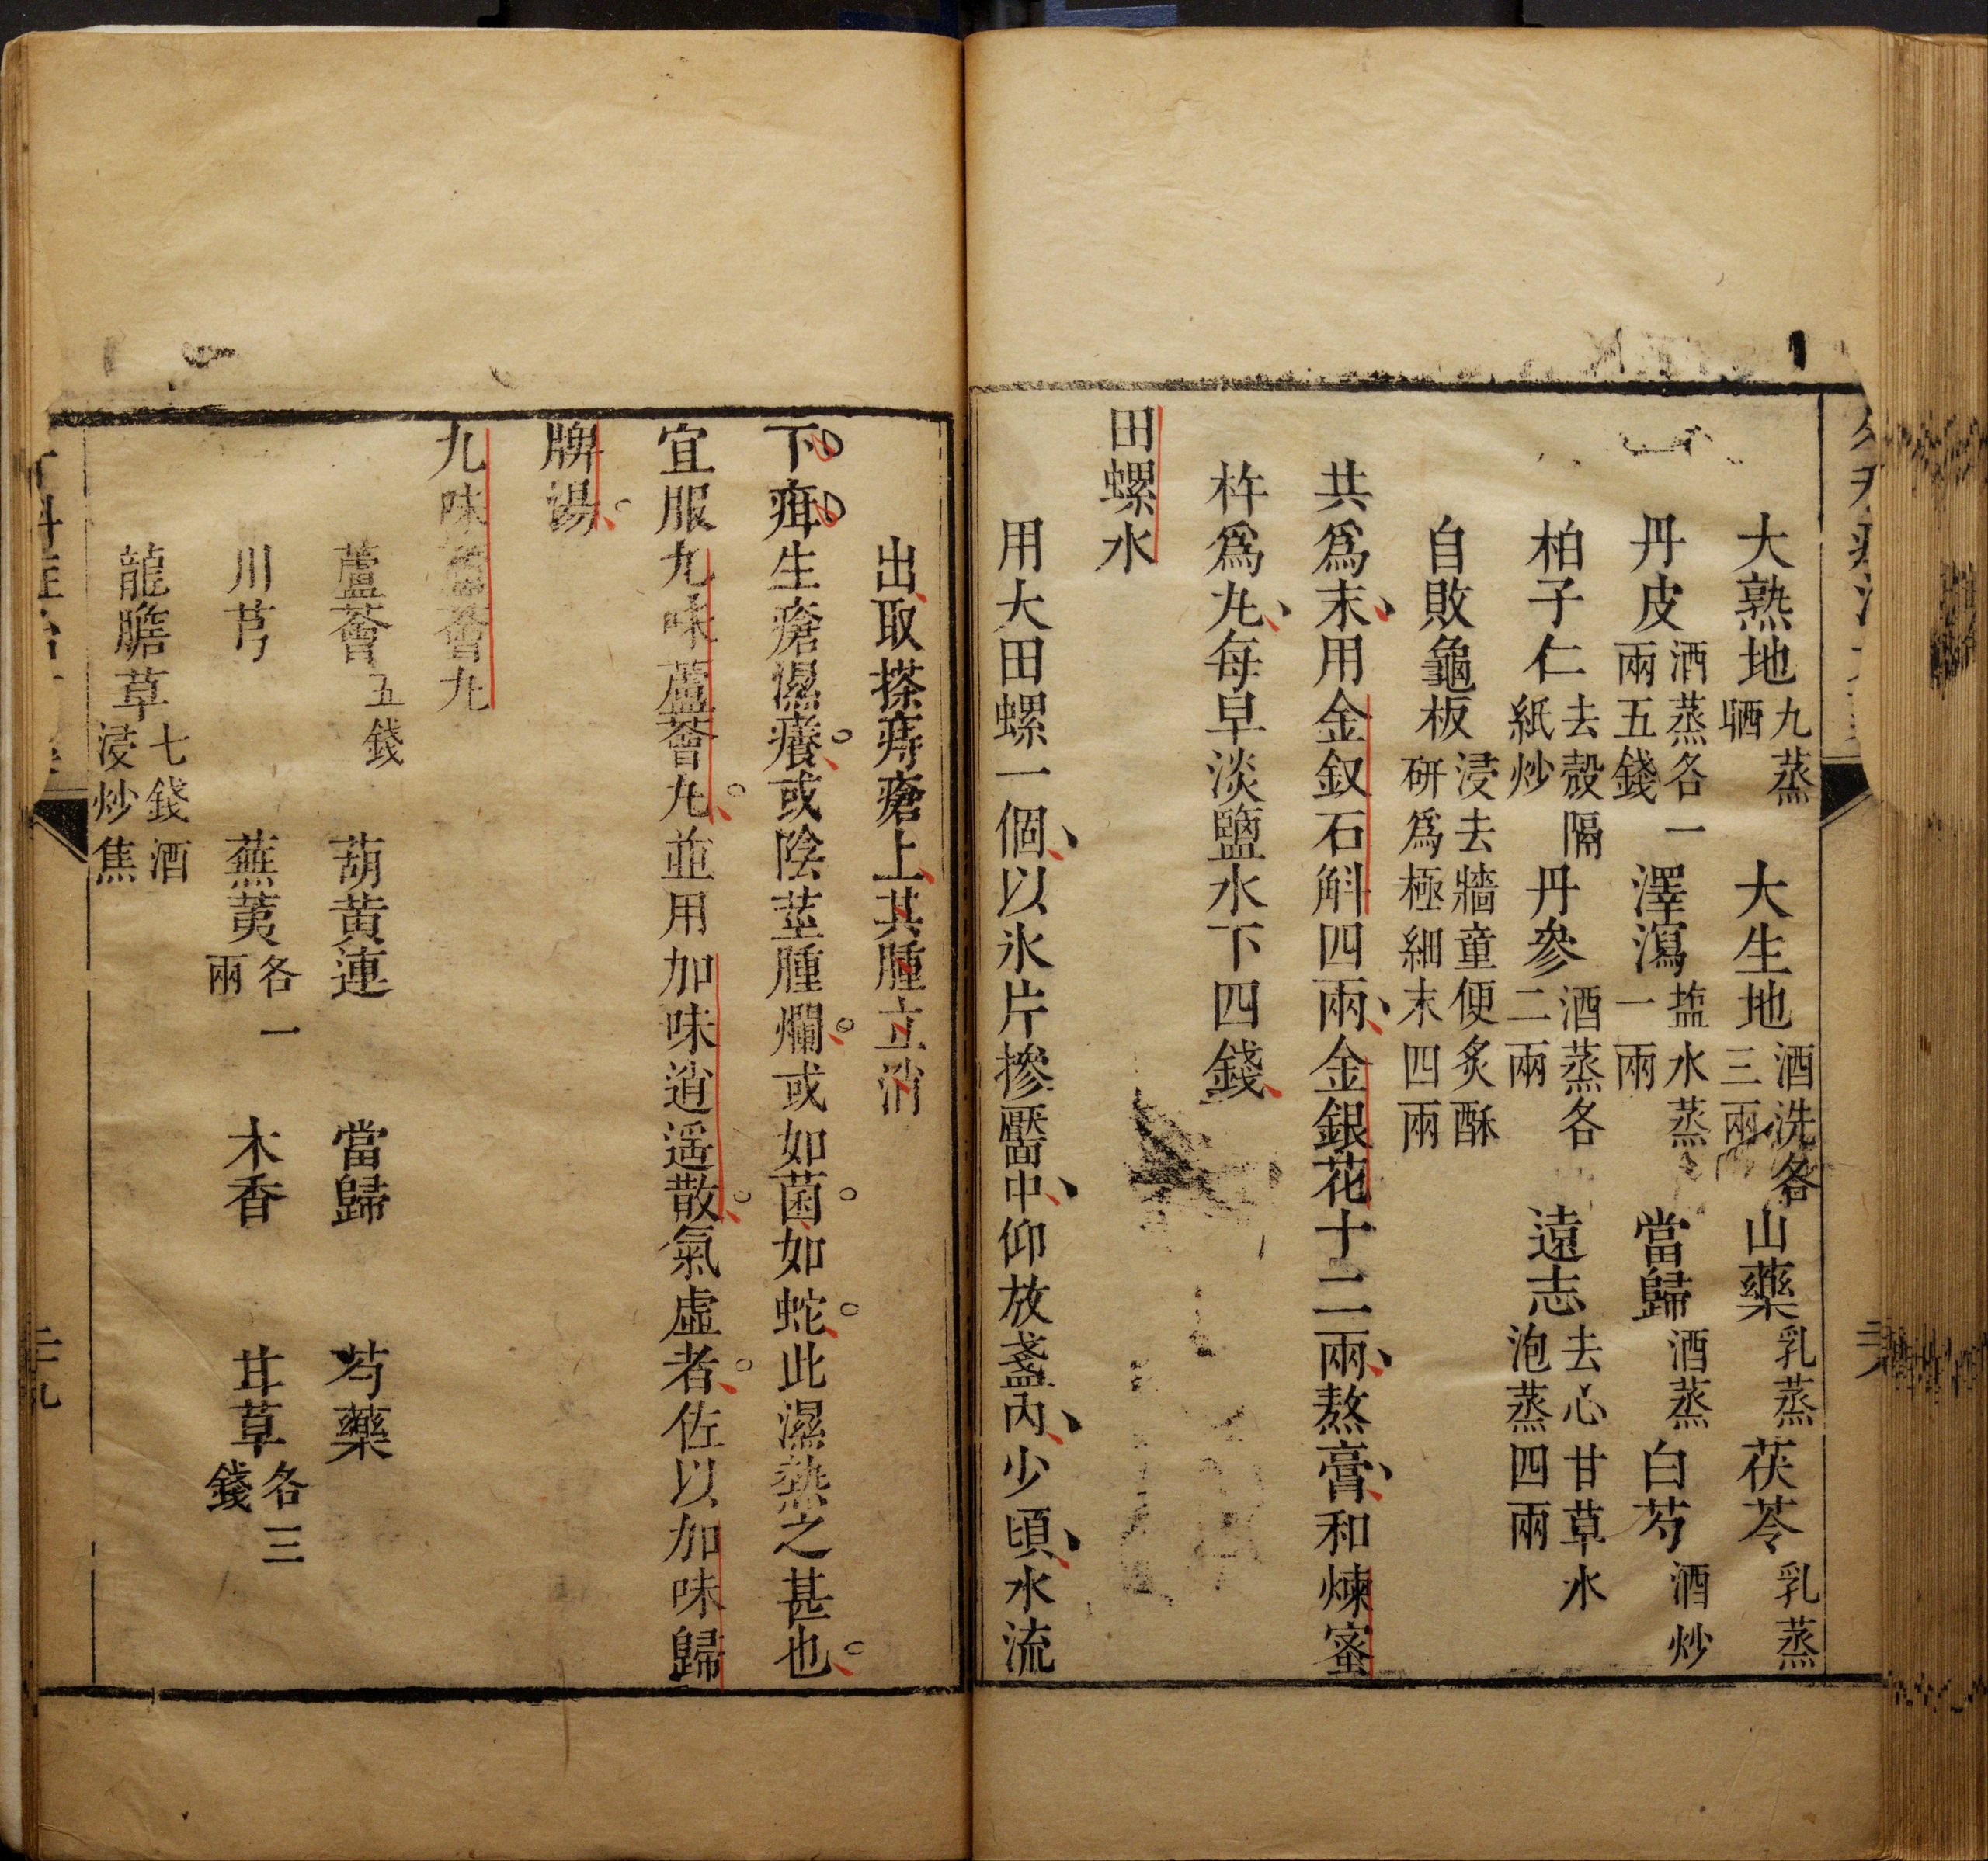 大熟地九蒸晒　大生地酒洗各三兩　山藥乳蒸　茯苓乳蒸
丹皮酒蒸各一兩五錢　澤瀉盐水蒸一兩　當歸酒蒸　白芍酒炒
柏子仁去殼隔紙炒　丹參酒蒸各二兩　遠志去心甘草水泡蒸四兩
自敗龜板浸去牆童便炙酥研爲極細末四兩
共爲末用金釵石斛四兩金銀花十二兩熬膏和煉蜜
杵爲九每早淡鹽水下四錢
田螺水
用大田螺一個以氷片摻靨中仰放盞內少頃水流
出取搽痔瘡上其腫立消
下疳生瘡濕癢或陰莖腫爛或如菌如蛇此濕熱之甚也
宜服九味蘆薈九並用加味逍遥散氣虛者佐以加味歸
脾湯
九味蘆薈九
蘆薈五錢　葫黃連　當歸　芍藥
川芎　蕪荑各一兩　木香　甘草各三錢
龍膽草七錢酒浸炒焦